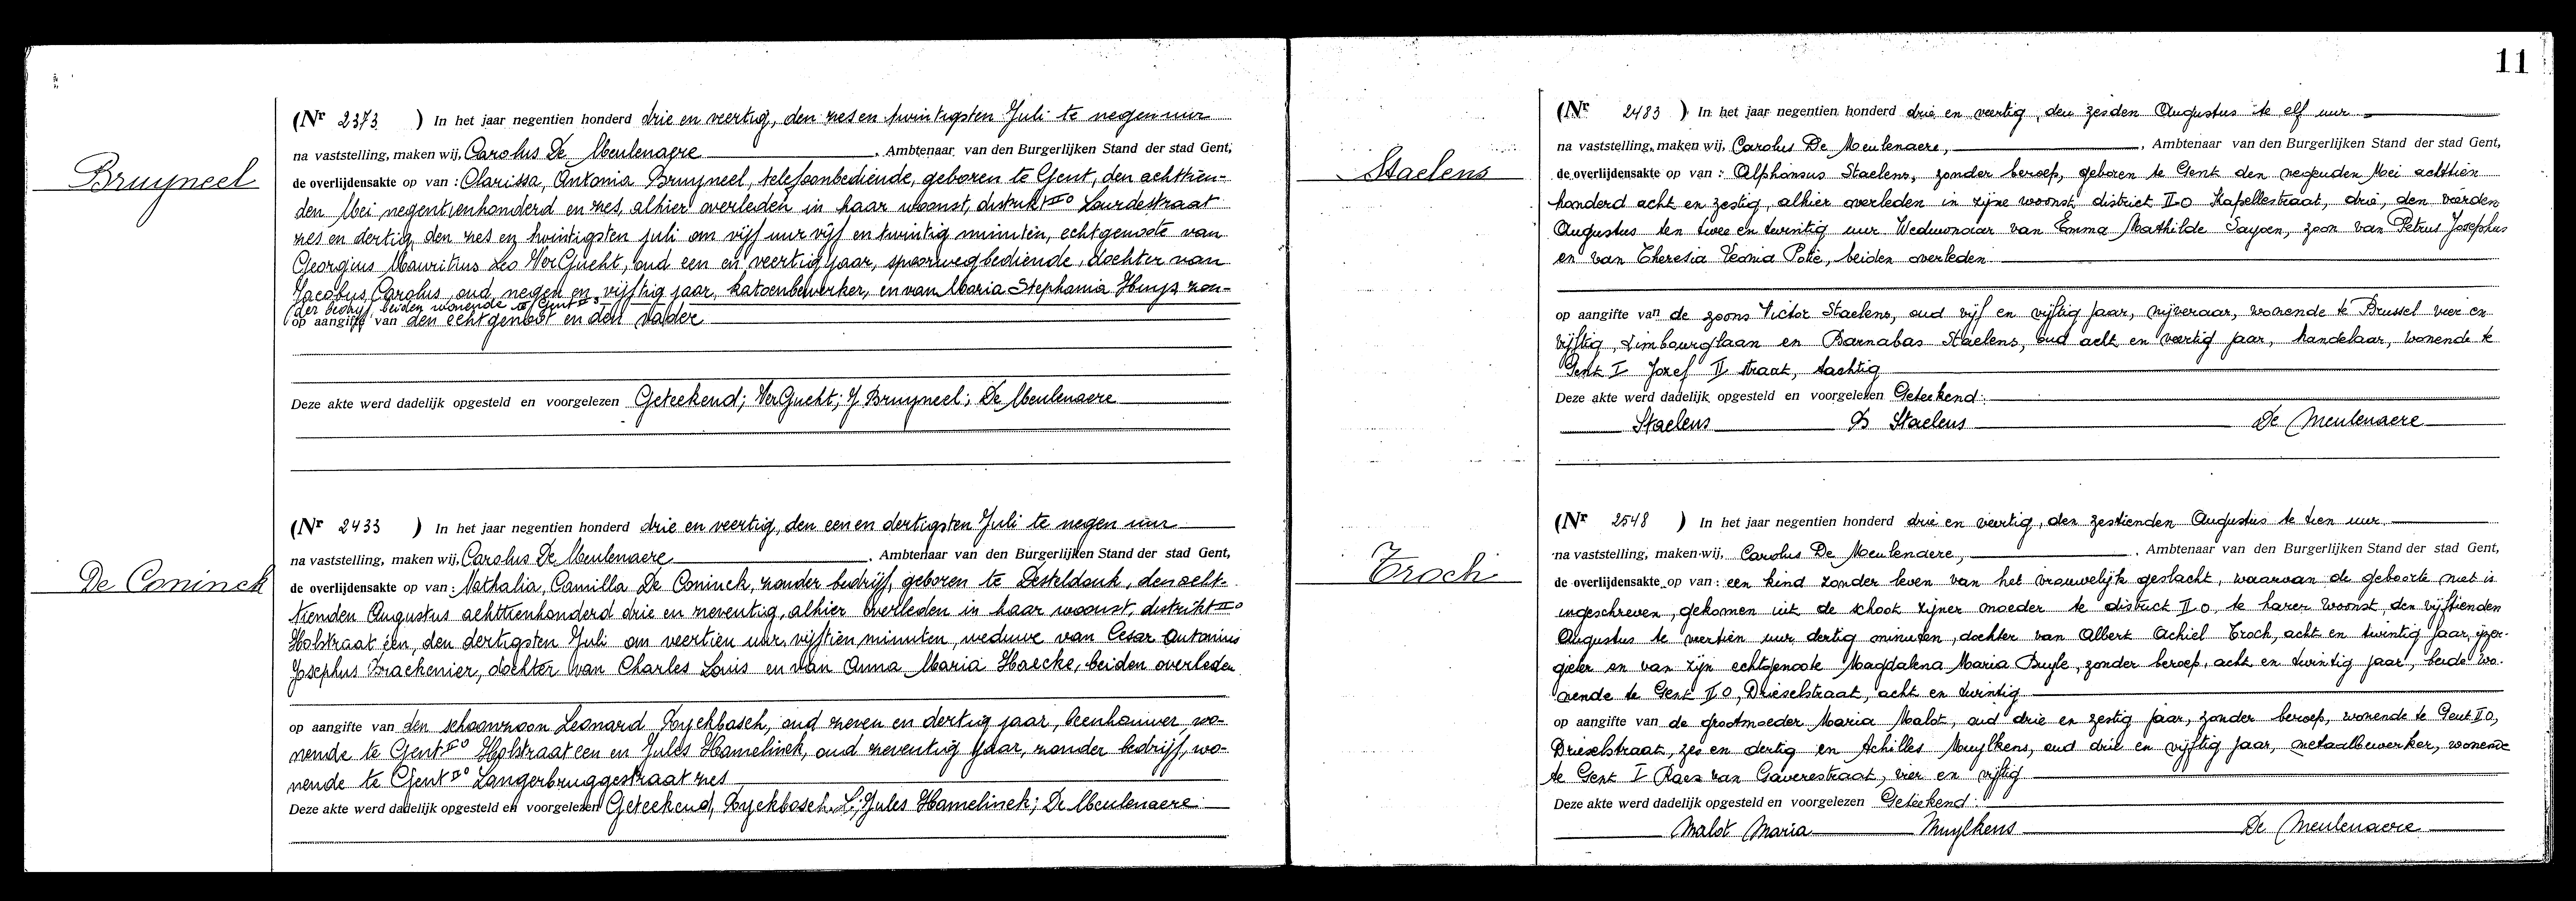 Bruyneel
(Nr 2373 ) In het jaar negentien honderd drie en veertig, den zes en twintigsten Juli te negen uur
na vaststelling, maken wij, Carolus De Meulenaere, Ambtenaar van den Burgerlijken Stand der stad Gent,
de overlijdensakte op van : Clarissa, Antonia Bruyneel, telefoonbediende, geboren te Gent, den achttien-
den Mei negentienhonderd en zes, alhier overleden in haar woonst, distrikt IIo Lourdestraat
zes en dertig, den zes en twintigsten juli om vijf uur vijf en twintig minuten, echtgenoote van
Georgius Mauritius Leo VerGucht, oud een en veertig jaar, spoorwegbediende, dochter van
Jacobus, Carolus, oud negen en vijftig jaar, katoenbewerker, en van Maria Stephania Huys zon-
der bedrijf, beiden wonende te Gent IIo
op aangifte van den echtgenoot en den vader
Deze akte werd dadelijk opgesteld en voorgelezen Geteekend; VerGucht; J Bruyneel; De Meulenaere
De Coninck
(Nr 2433 ) In het jaar negentien honderd drie en veertig, den een en dertigsten Juli te negen uur
na vaststelling, maken wij, Carolus De Meulenaere, Ambtenaar van den Burgerlijken Stand der stad Gent,
de overlijdensakte op van : Nathalia, Camilla De Coninck, zonder bedrijf, geboren te Desteldonk, den acht-
tienden Augustus achttienhonderd drie en zeventig, alhier overleden in haar woonst, distrikt IIo
Holstraat één, den dertigsten Juli om veertien uur, vijftien minuten, weduwe van Cesar Antonius
Josephus Brackenier, dochter van Charles Louis en van Anna Maria Haecke, beiden overleden
op aangifte van den schoonzoon Leonard Ryckbosch, oud zeven en dertig jaar, beenhouwer, wo-
nende te Gent IIo Holstraat een en Jules Hamelinck, oud zeventig jaar, zonder bedrijf, wo-
nende te Gent IIo Langerbruggestraat zes
Deze akte werd dadelijk opgesteld en voorgelezen Geteekend, Ryckbosch L; Jules Hamelinck; De Meulenaere
11
Staelens
(Nr 2483 ) In het jaar negentien honderd drie en veertig, den zesden Augustus te elf uur
na vaststelling, maken wij, Carolus De Meulenaere, Ambtenaar van den Burgerlijken Stand der stad Gent,
de overlijdensakte op van : Alphonsus Staelens, zonder beroep, geboren te Gent den negenden Mei achttien
honderd acht en zestig, alhier overleden in zijne woonst, district II o Kapellestraat, drie, den vierden
Augustus ten twee en twintig uur Weduwnaar van Emma Mathilde Sayoen, zoon van Petrus Josephus
en van Theresia Leonia Potié, beiden overleden.
op aangifte van de zoons Victor Staelens, oud vijf en vijftig jaar, nijveraar, wonende te Brussel vier en
vijftig, Limbourglaan en Barnabas Staelens, oud acht en veertig jaar, handelaar, wonende te
Gent I Jozef II straat, tachtig
Deze akte werd dadelijk opgesteld en voorgelezen Geteekend:
Staelens B Staelens De Meulenaere
Troch
(Nr 2548 ) In het jaar negentien honderd drie en veertig, den zestienden Augustus te tien uur
na vaststelling, maken wij, Carolus De Meulenaere, Ambtenaar van den Burgerlijken Stand der stad Gent,
de overlijdensakte op van : een kind zonder leven van het vrouwelijk geslacht, waarvan de geboorte niet is
ingeschreven, gekomen uit de schoot zijner moeder te district II o, te harer woonst den vijftienden
Augustus te veertien uur dertig minuten, dochter van Albert Achiel Troch, acht en twintig jaar, ijzer-
gieter en van zijn echtgenoote Magdalena Maria Buyle, zonder beroep, acht en twintig jaar, beide wo-
nende te Gent II o, Drieselstraat, acht en twintig
op aangifte van de grootmoeder Maria Malot, oud drie en zestig jaar, zonder beroep, wonende te Gent II o,
Drieselstraat, zes en dertig en Achilles Muylkens, oud drie en vijftig jaar, metaalbewerker, wonende
te Gent I Raes van Gaverestraat, vier en vijftig
Deze akte werd dadelijk opgesteld en voorgelezen Geteekend:
Malot Maria Muylkens De Meulenaere